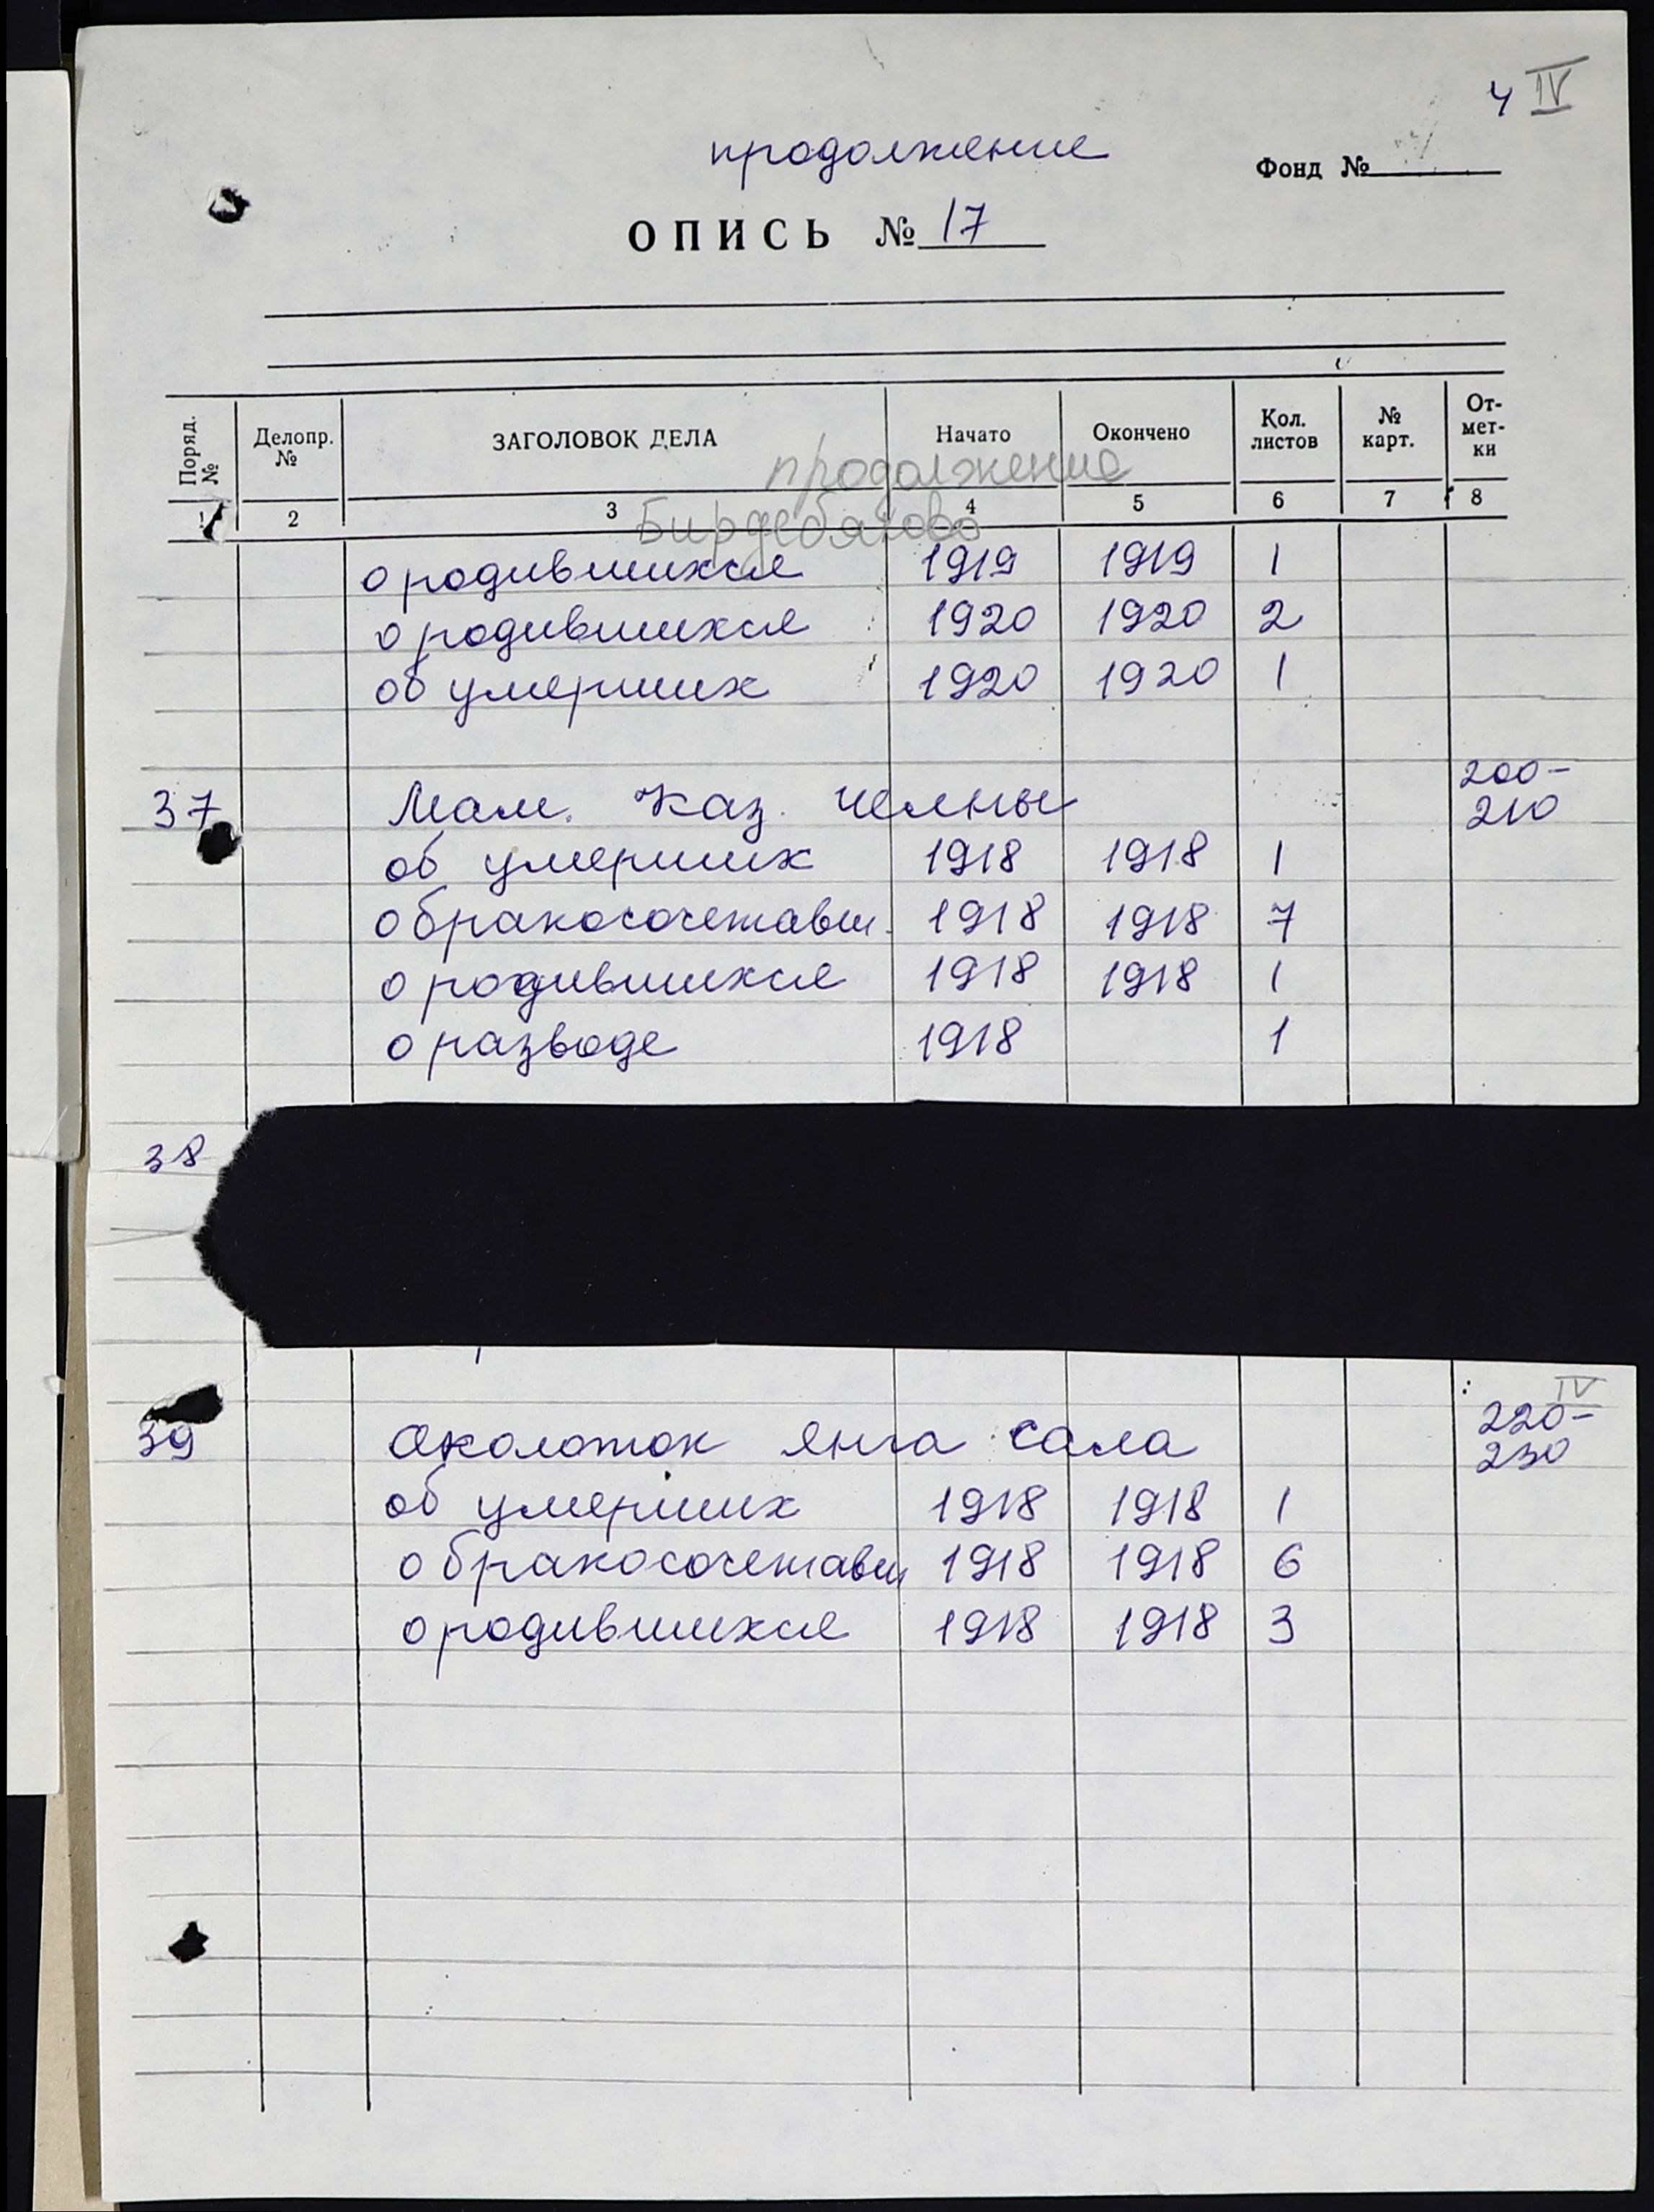 4 IV
продолжение
Фонд №
ОПИСЬ № 17
Поряд. № Делопр. № ЗАГОЛОВОК ДЕЛА Начато Окончено Кол. листов № карт. От-мет-ки
продолжение
1 2 3 4 5 6 7 8
Бирдебяково
о родившихся 1919 1919 1
о родившихся 1920 1920 2
об умерших 1920 1920 1
37 Мам. Каз. Челны 200-210
об умерших 1918 1918 1
о бракосочетавш. 1918 1918 7
о родившихся 1918 1918 1
о разводе 1918 1
38
IV
39 Околоток Янга Сала 220-230
об умерших 1918 1918 1
о бракосочетавш 1918 1918 6
о родившихся 1918 1918 3